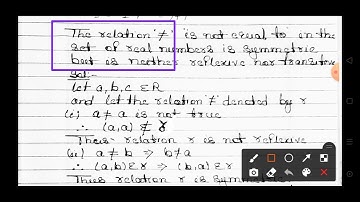 The relation '≠' is not equal to in the
set of real numbers is symmetric
but is neither reflexive nor transitive
Sol:-
let a, b, c ∈ R
and let the relation '≠' denoted by r
(i) a ≠ a is not true
∴ (a,a) ∉ r
Thus relation r is not reflexive
(ii) a ≠ b ⇒ b ≠ a
∴ (a,b) ∈ r ⇒ (b,a) ∈ r
Thus relation r is symmetric,